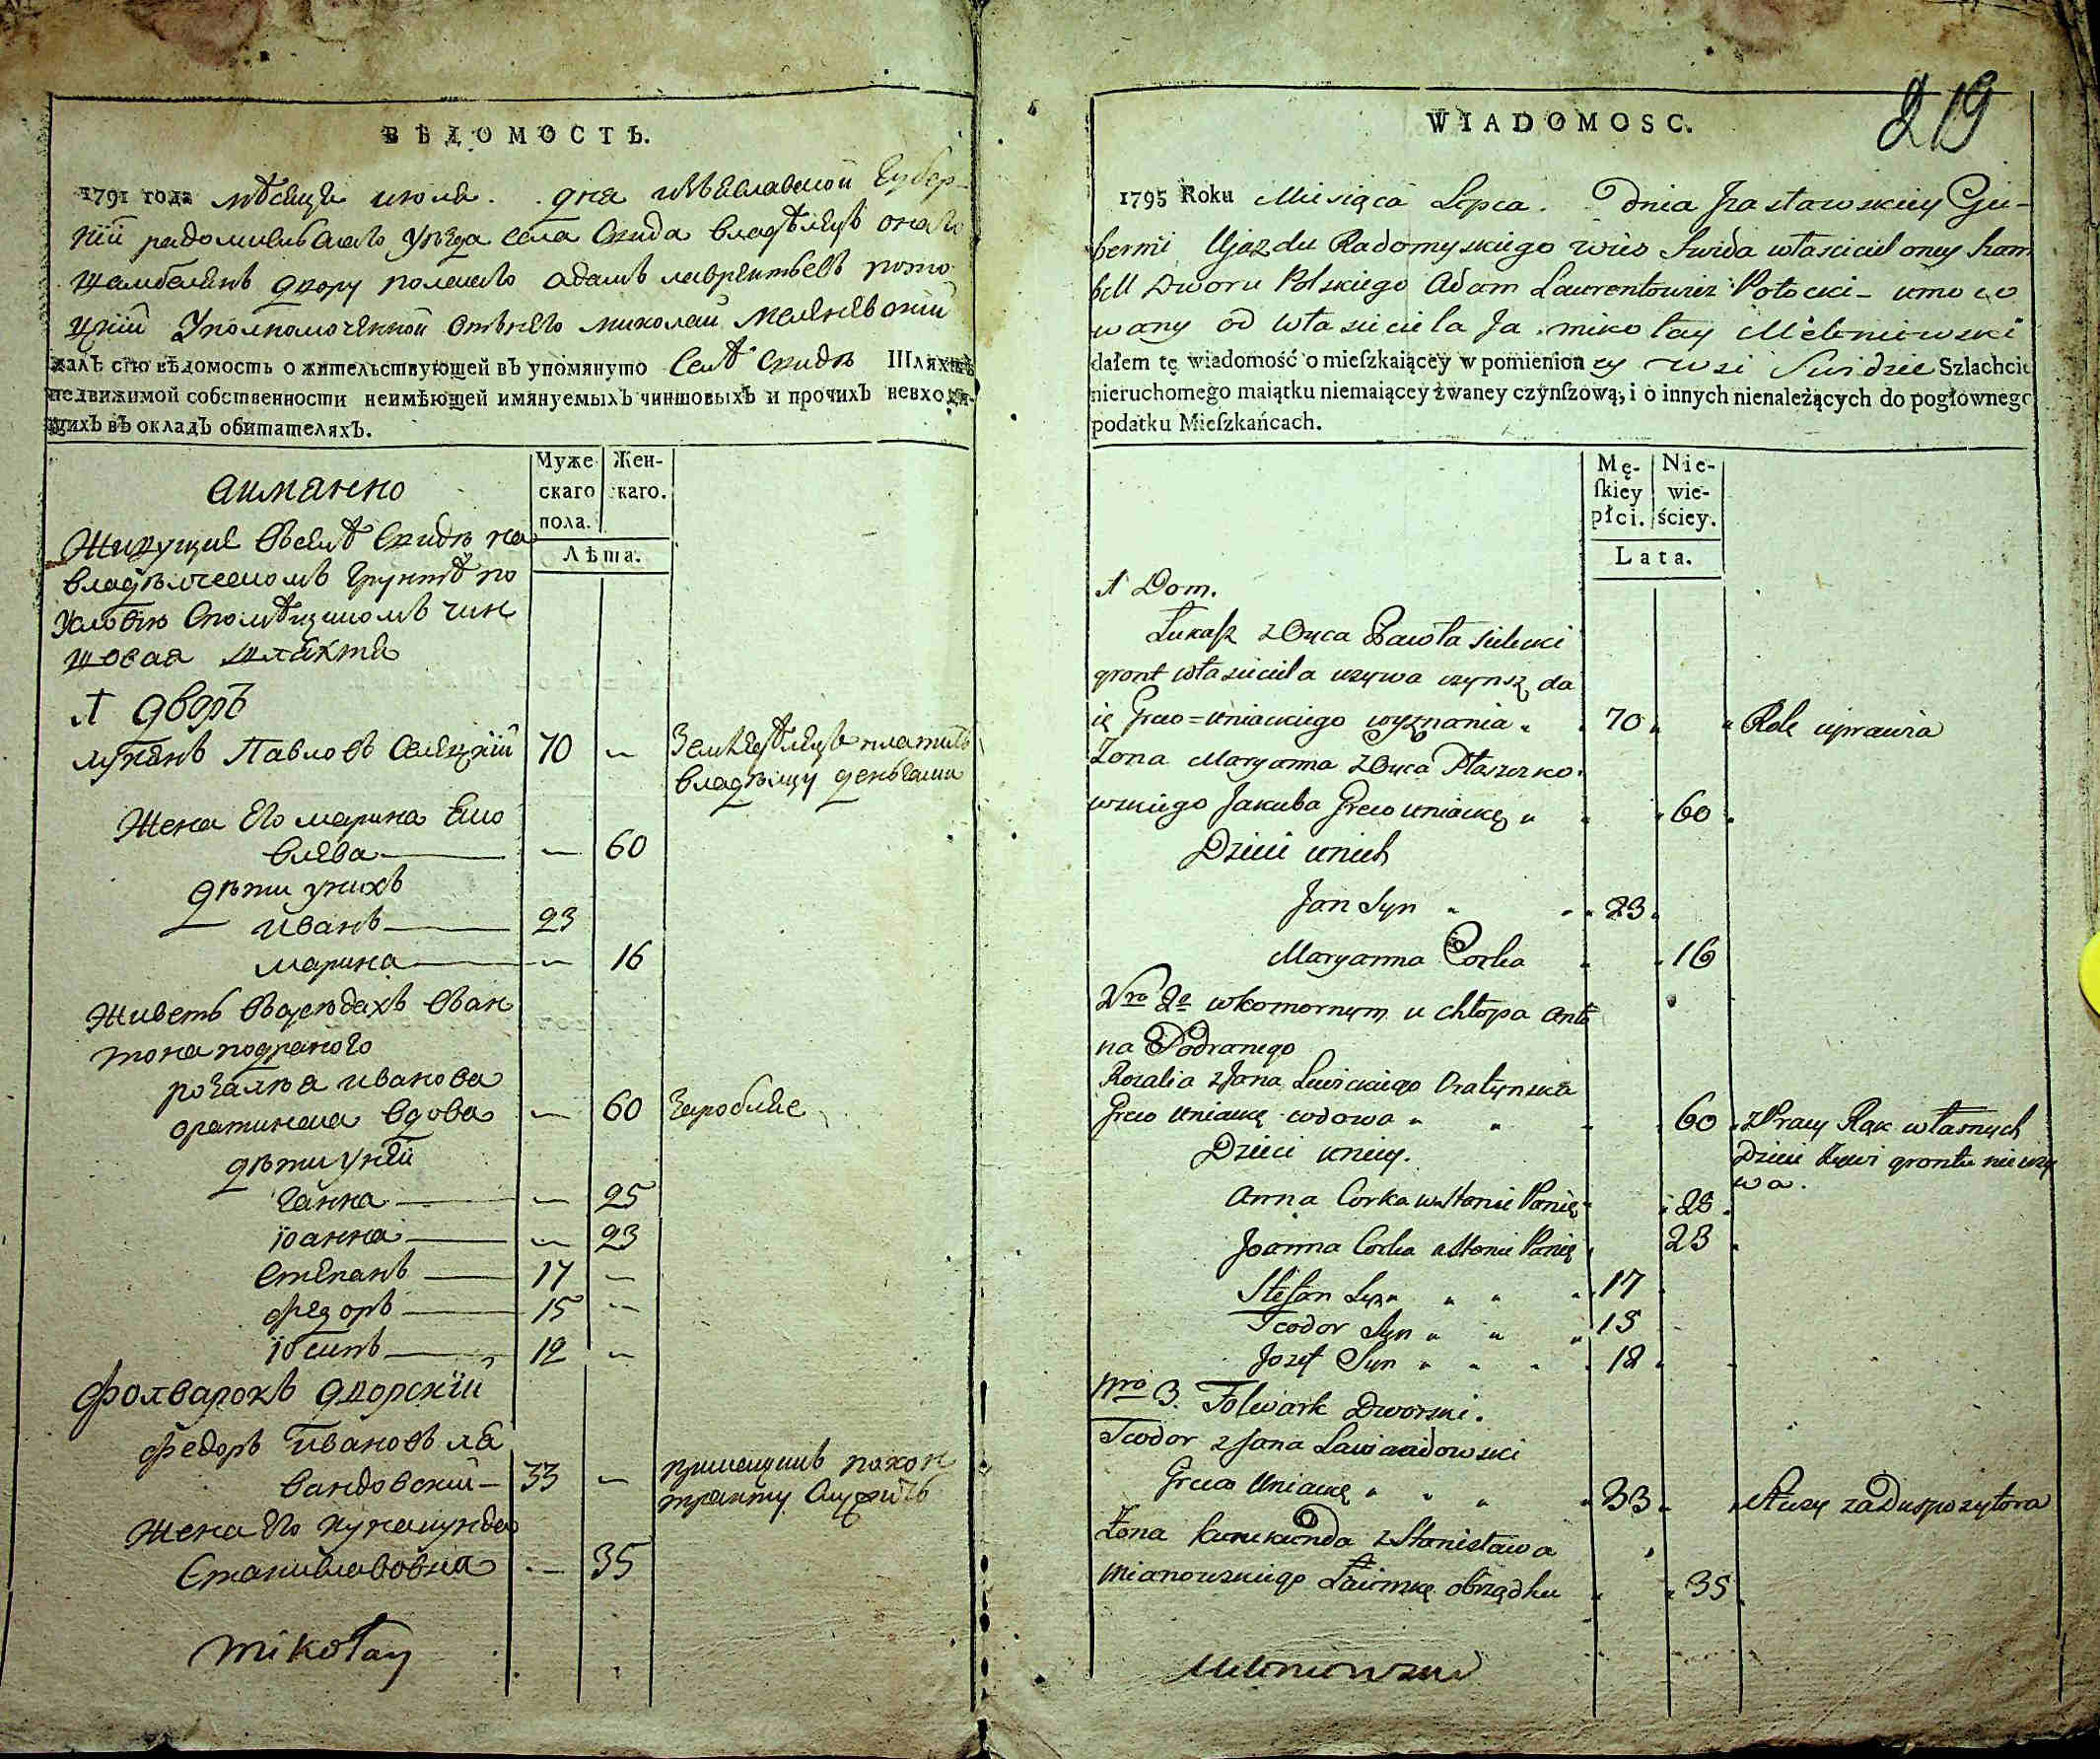 ВѢДОМОСТЬ.
1791 года мѣсяца июля. дня изъяславской Губер-
нїи радомисльскаго уѣзда села Свида владѣлецъ онаго
шамбелянъ двору полскаго адамъ лаврентьевъ пото
цкїй Уполномоченной отънего миколай мелен&#x0463;вский
далъ сїю вѣдомость о жительствующей въ упомянуто селѣ Свидѣ Шляхтѣ
недвижимой собственности неимѣющей имянуемыхъ чиншовыхъ и прочихъ невходя-
щихъ въ окладъ обитателяхъ.
Муже
скаго
пола.
Жен-
скаго.
Лѣта.
аимянно
Живущие Вселѣ Свидѣ на
владѣлческомъ грунтѣ по
Условїю Спомѣщикомъ чин
шовая шляхта
1 дворъ
лукянъ Павловъ Селецкїй 70 — Земледѣлецъ платитъ
владѣлцу деньгами
Жена Его марина Яко
влева — — 60
дѣти унихъ
иванъ — 23
марина — — 16
Живетъ Всусѣдахъ Уан
тона подраного
розалѣя иванова
оратинска вдова — 60 Заробляе
дѣти унеи
ганна — — 25
їоанна — — 23
степанъ — 17 —
федоръ — 15 —
їосипъ — 12 —
Фолварокъ дворскїй
федоръ Ивановъ ла
вандовскїй — 33 — прикащикъ покон
тракту Служитъ
Жена Его кунакунда
Станиславовна — 35
Mikołay
219
WIADOMOSC.
1795 Roku Miesiąca Lipca. Dnia Jzastawskiey Gu-
bernii Ujazdu Radomyskiego wieś Swida własciciel oney Szam
bell Dworu Polskiego Adam Laurentowicz Potocki - umoco
wany od własciciela Ja mikołay Meleniewski
dałem tę wiadomość o mieſzkaiącey w pomienion ey wsi Swidzie Szlachcie
nieruchomego maiątku niemaiącey zwaney czynſzową, i o innych nienależących do pogłownego
podatku Mieſzkańcach.
Mę-
ſkiey
płci.
Nie-
wie-
ściey.
Lata.
1 Dom.
Łukasz z Oyca Pawła Sielecki
gront własciciela uzywa czynsz da
ię Greco=uniackiego wyznania 70 Role uprawia
Zona Maryanna z Oyca Ptaszko-
wskiego Jakuba Greco uniackę 60
Dzieci unich
Jan Syn 23
Maryanna Corka 16
Nro 2o wkomornym u chłopa Anto
na Podranego
Rozalia z Jana Lewickiego Oratynska
Greco Uniackę wdowa 60 z Pracy Rąk własnych
Dzieci Zywi grontu nie uzy
wa.
Dzieci uniey.
Anna Corka w Stanie Panię 25
Joanna Corka w Stanie Panię 23
Stefan Syn 17
Teodor Syn 15
Jozef Syn 12
Nro 3. Folwark Dworski.
Teodor z Jana Lawandowski
Greco Uniackę 33 Służy za Dispozytora
Zona Kunekunda z Stanisława
Mianowskiego Łacinskę obrządku 35
Meleniewski